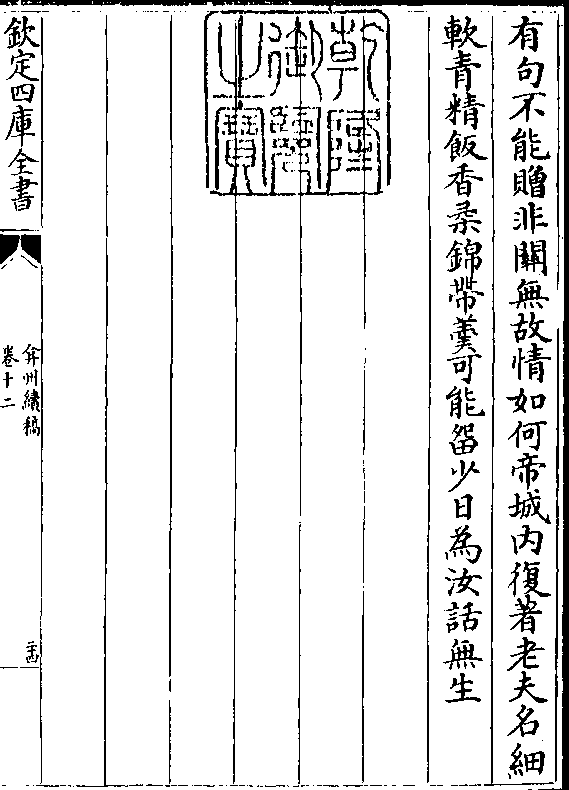 有句不能贈非關無故情如何帝城内復著老夫名細
軟青精飯香柔錦帶羹可能留少日為汝話無生
乾隆
御覽
之寶
欽定四庫全書
弇州續稿
卷十二
二十四